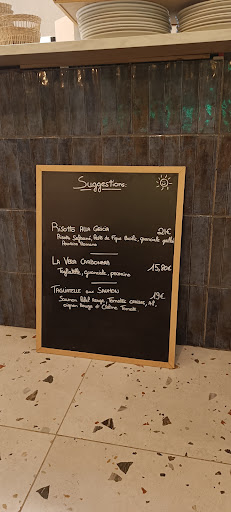 Suggestions:
RISOTTO ALLA GRICIA 21€
Risotto Safrané, Pesto de
Pecorino Romano
LA VERA CARBONARA 15,80€
Tagliatelle, guanciale, pecorino
TAGLIATELLE au SAUMON 19€
Saumon Label Rouge, Tomates cerises, Ail,
oignon Rouge et Crème Tomate.